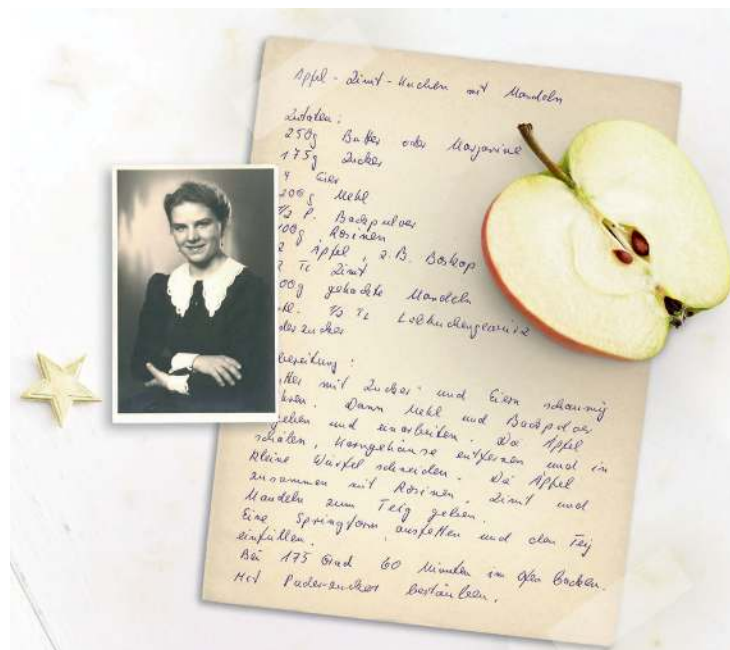 Äpfel-Zimt-Kuchen mit Mandeln
Zutaten:
250g Butter oder Margarine
175g Zucker
4 Eier
200g Mehl
1/2 P. Backpulver
100g Rosinen
2 Äpfel, z.B. Boskop
2 TL Zimt
00g gehackte Mandeln
1/2 TL Lebkuchengewürz
derzucker
bereitung:
tter mit Zucker und Eiern schaumig
hren. Dann Mehl und Backpulver
geben und einarbeiten. Die Äpfel
schälen, Kerngehäuse entfernen und in
kleine Würfel schneiden. Die Äpfel
zusammen mit Rosinen, Zimt und
Mandeln zum Teig geben.
Eine Springform ausfetten und den Teig
einfüllen.
Bei 175 Grad 60 Minuten im Ofen backen.
Mit Puderzucker bestäuben.